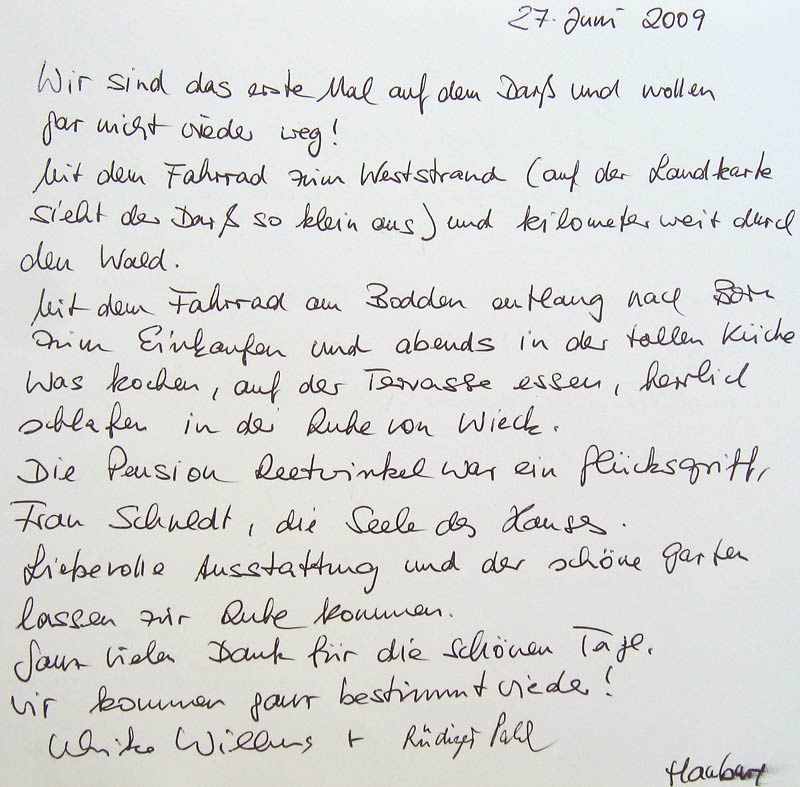 27. Juni 2009
Wir sind das erste Mal auf dem Darß und wollen
gar nicht wieder weg!
Mit dem Fahrrad zum Weststrand (auf der Landkarte
sieht der Darß so klein aus) und kilometerweit durch
den Wald.
Mit dem Fahrrad am Bodden entlang nach Born
zum Einkaufen und abends in der tollen Küche
was kochen, auf der Terrasse essen, herrlich
schlafen in der Ruhe von Wieck.
Die Pension Reetwinkel war ein Glücksgriff,
Frau Schuldt, die Seele des Hauses.
Liebevolle Ausstattung und der schöne Garten
lassen zur Ruhe kommen.
Ganz vielen Dank für die schönen Tage.
Wir kommen ganz bestimmt wieder!
Ulrike Willms + Rüdiger Pahl